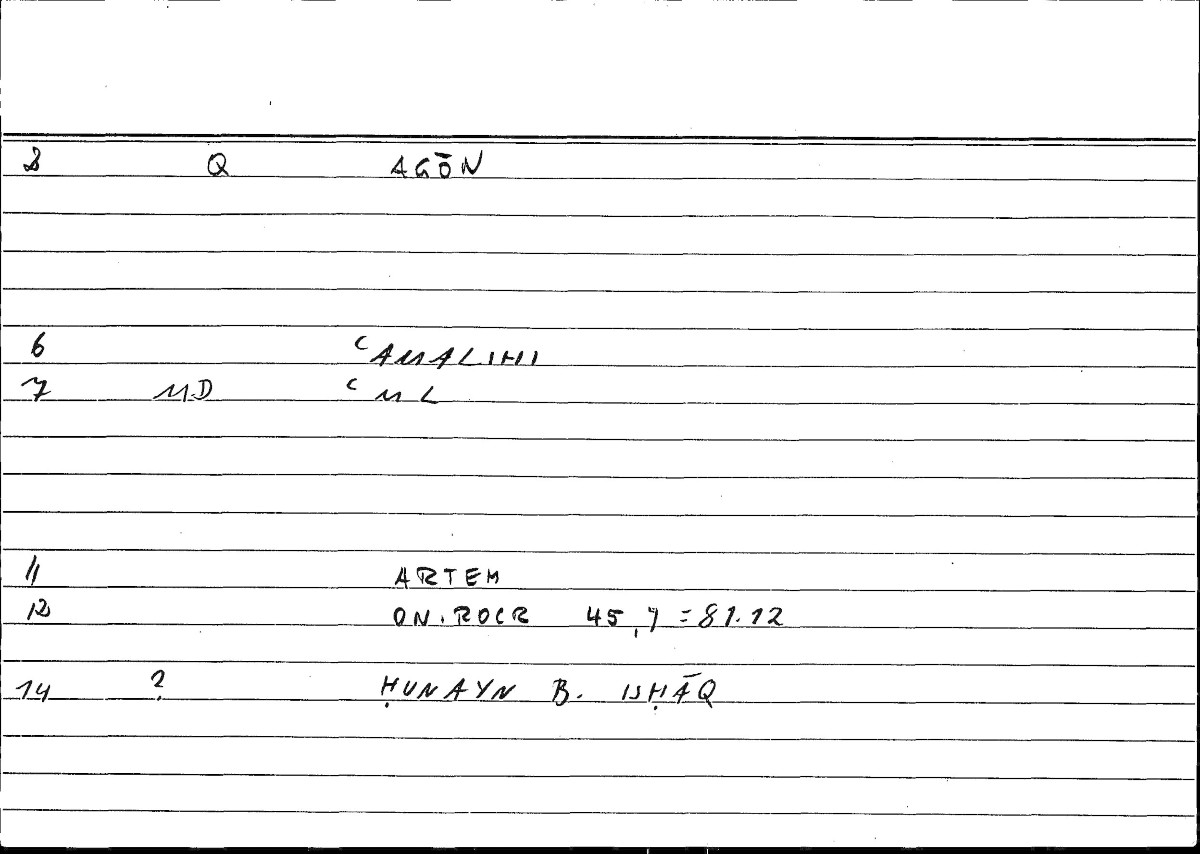 Q AGŌN
6 ʿAMALIHI
7 MD ʿML
11 ARTEM
12 ON.ROCR 45,7 = 81.12
14 ? ḤUNAYN B. ISḤĀQ